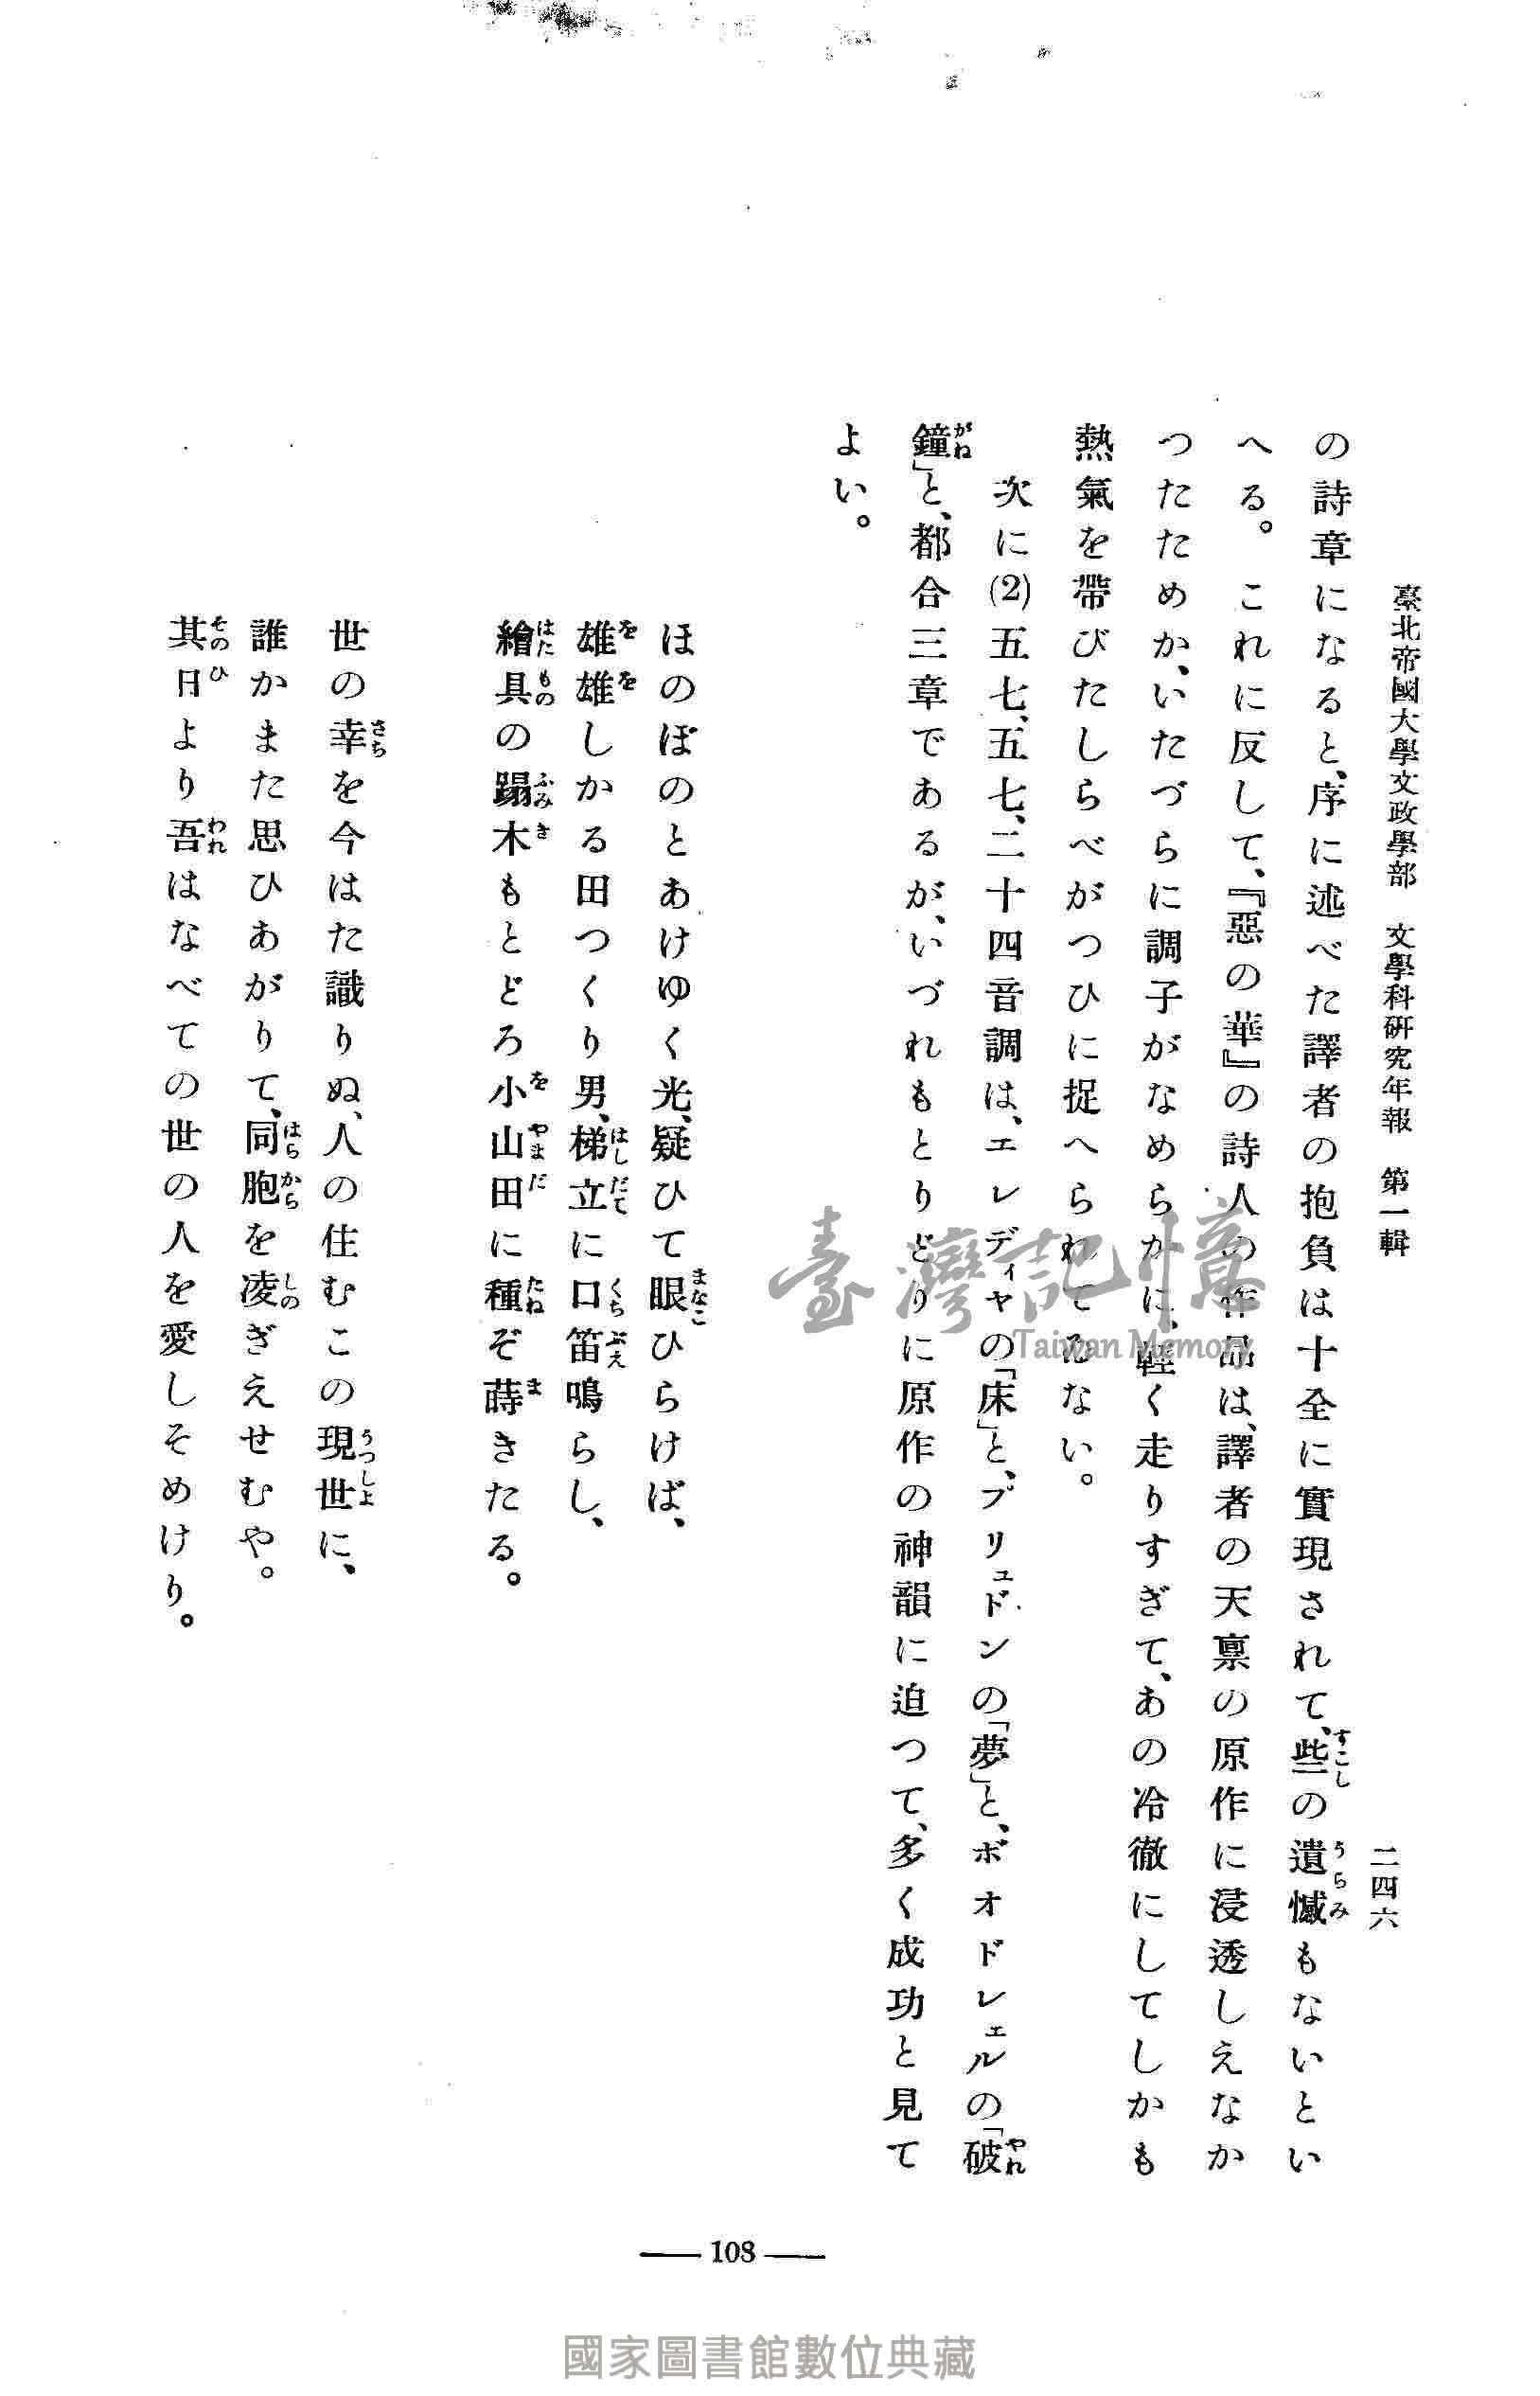 臺北帝國大學文政學部　文學科硏究年報　第一輯　　二四六
の詩章になると、序に述べた譯者の抱負は十全に實現されて、些の遺憾もないとい
へる。これに反して、『惡の華』の詩人の作品は、譯者の天禀の原作に浸透しえなか
つたためか、いたづらに調子がなめらかに、輕く走りすぎて、あの冷徹にしてしかも
熱氣を帶びたしらべがつひに捉へられてゐない。
次に(2)五七、五七、二十四音調は、エレディヤの「床」と、プリュドンの「夢」と、ボオドレェルの「破
鐘」と、都合三章であるが、いづれもとりどりに原作の神韻に迫つて、多く成功と見て
よい。
ほのぼのとあけゆく光、疑ひて眼ひらけば、
雄雄しかる田つくり男、梯立に口笛鳴らし、
繪具の蹋木もとどろ小山田に種ぞ蒔きたる。
世の幸を今はた識りぬ、人の住むこの現世に、
誰かまた思ひあがりて、同胞を凌ぎえせむや。
其日より吾はなべての世の人を愛しそめけり。
108
臺灣記憶
Taiwan Memory
國家圖書館數位典藏